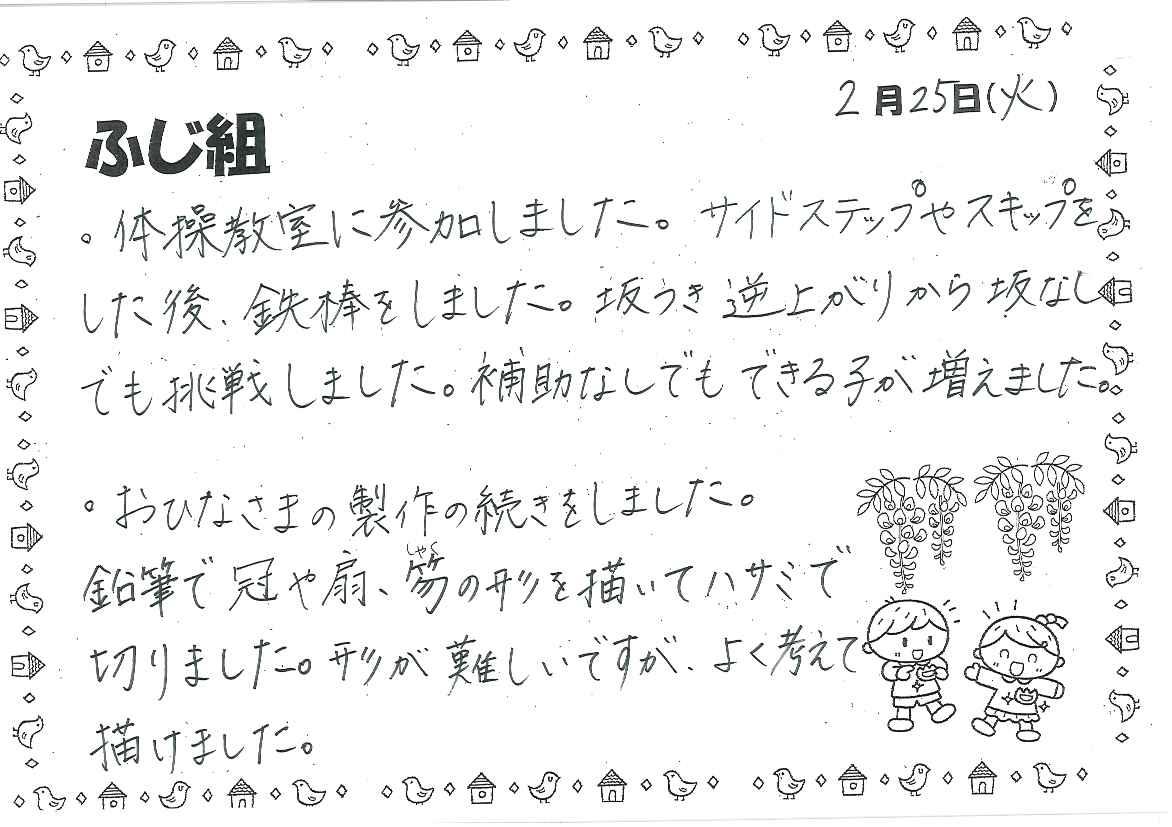 2月25日(火)
ふじ組
。体操教室に参加しました。サイドステップやスキップを
した後、鉄棒をしました。坂つき逆上がりから坂なし
でも挑戦しました。補助なしでもできる子が増えました。
。おひなさまの製作の続きをしました。
しゃく
鉛筆で冠や扇、笏の形を描いてハサミで
切りました。形が難しいですが、よく考えて
描けました。